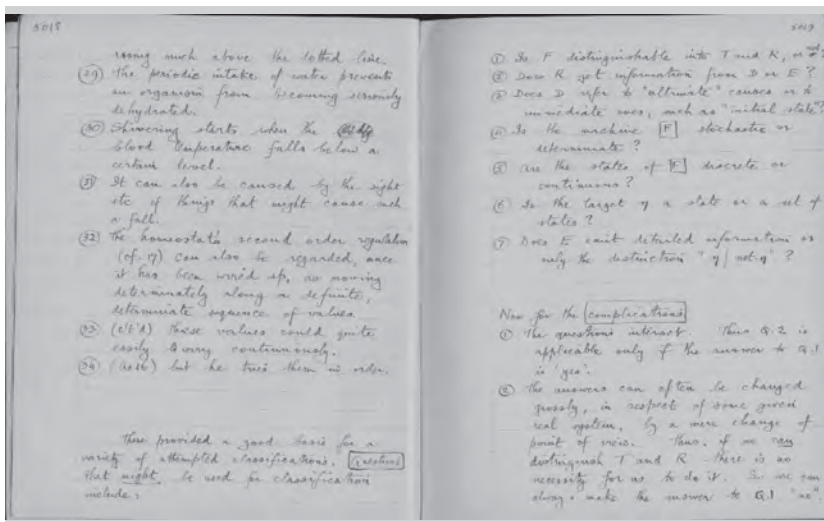 5018
rising much above the dotted line.
(29) The periodic intake of water prevents
an organism from becoming seriously
dehydrated.
(30) Shivering starts when the
blood temperature falls below a
certain level.
(31) It can also be caused by the sight
etc of things that might cause such
a fall.
(32) The homeostat's second order regulation
(cf. 17) can also be regarded, once
it has been wired up, as moving
determinately along a definite,
determinate sequence of values
(33) (ct'd) these values could quite
easily vary continuously.
(34) (as 16) but he tries them in order.
These provided a good basis for a
variety of attempted classifications. Questions
that might be used for classification
include:
5019
① Is F distinguishable into T and R, or not?
② Does R get information from D or E?
③ Does D refer to "ultimate" causes or to
immediate ones, such as "initial state"?
④ Is the machine F stochastic or
determinate?
⑤ Are the states of F discrete or
continuous?
⑥ Is the target η a state or a set of
states?
⑦ Does E emit detailed information or
only the distinction "η / not-η"?
Now for the complications
① The questions interact. Thus Q.2 is
applicable only if the answer to Q.1
is 'yes'.
② The answers can often be changed
grossly, in respect of some given
real system, by a mere change of
point of view. Thus, if we can
distinguish T and R there is no
necessity for us to do it. So we can
always make the answer to Q.1 "no".